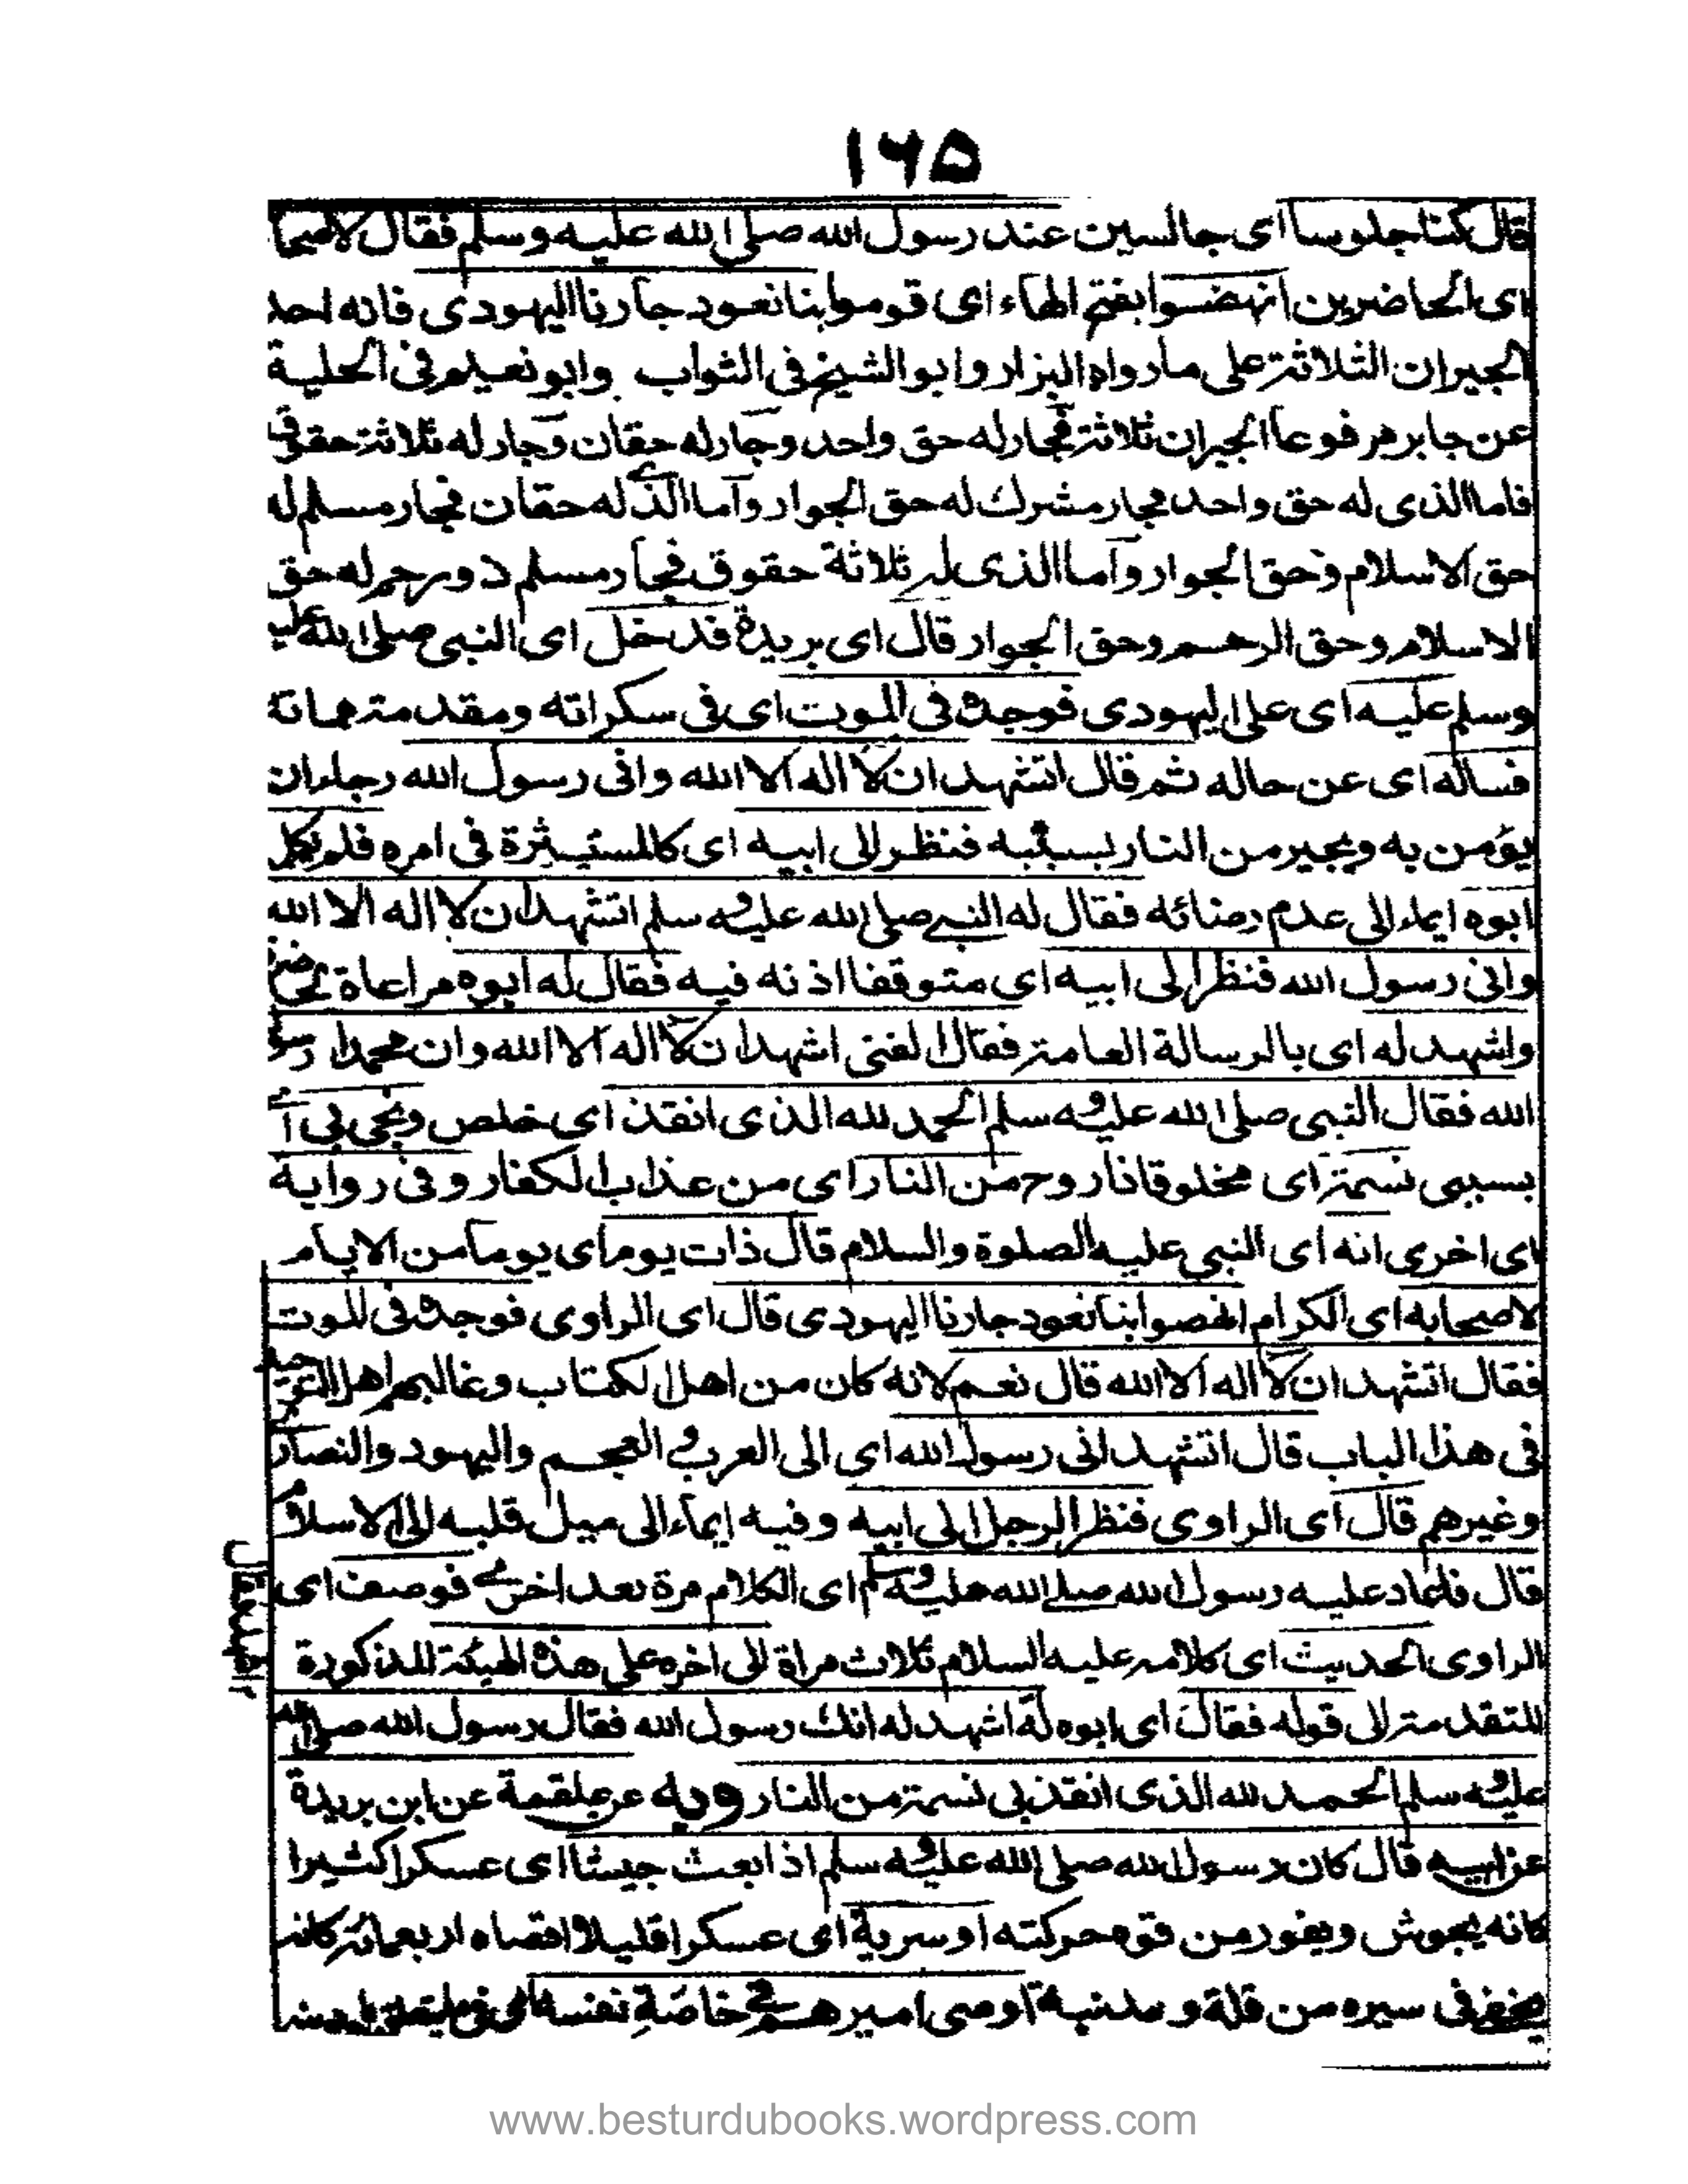 ١٦٥
قال كنا جلوسا اى جالسين عند رسول الله صلى الله عليه وسلم فقال لاصحا
اى الحاضرين انهضوا بفتح الهاء اى قوموا بنا نعود جارنا اليهودى فانه احد
الجيران الثلاثة على مارواه البزار وابو الشيخ فى الثواب وابو نعيم فى الحلية
عن جابر مرفوعا الجيران ثلاثة فجار له حق واحد وجار له حقان وجار له ثلاثة حقوق
فاما الذى له حق واحد فجار مشرك له حق الجوار وآما الذى له حقان فجار مسلم له
حق الاسلام وحق الجوار وآما الذى له ثلاثة حقوق فجار مسلم ذو رحم له حق
الاسلام وحق الرحم وحق الجوار قال اى بريدة فدخل اى النبى صلى الله عليه
وسلم عليه اى على اليهودى فوجده فى الموت اى فى سكراته ومقدمة مماته
فساله اى عن حاله ثم قال اتشهد ان لا اله الا الله وانى رسول الله رجاء ان
يؤمن به ويجير من النار بسببه فنظر الى ابيه اى كالمستشيرة فى امره فلم يكلم
ابوه ايماء الى عدم رضائه فقال له النبى صلى الله عليه وسلم اتشهد ان لا اله الا الله
وانى رسول الله فنظر الى ابيه اى متوقفا اذنه فيه فقال له ابوه مراعاة
واشهد له اى بالرسالة العامة فقال الفتى اشهد ان لا اله الا الله وان محمدا رسو
الله فقال النبى صلى الله عليه وسلم الحمد لله الذى انقذ اى خلص ونجى بى آ
بسببى نسمة اى مخلوقا ذا روح من النار اى من عذاب الكفار وفى رواية
اى اخرى انه اى النبى عليه الصلوة والسلام قال ذات يوم اى يوما من الايام
لاصحابه اى الكرام انهضوا بنا نعود جارنا اليهودى قال اى الراوى فوجده فى الموت
فقال اتشهد ان لا اله الا الله قال نعم لانه كان من اهل الكتاب وغالبهم اهل التوحيد
فى هذا الباب قال اتشهد انى رسول الله اى الى العرب والعجم واليهود والنصارى
وغيرهم قال اى الراوى فنظر الرجل الى ابيه وفيه ايماء الى ميل قلبه الى الاسلام
قال فاعاد عليه رسول الله صلى الله عليه وسلم اى الكلام مرة بعد اخرى فوصف اى
الراوى الحديث اى كلامه عليه السلام ثلاث مراة الى اخره على هذه الهيئة المذكورة
المتقدمة الى قوله فقال اى ابوه له اشهد له انك رسول الله فقال رسول الله صلى الله
عليه وسلم الحمد لله الذى انقذ بى نسمة من النار وبه عن علقمة عن ابن بريدة
عن ابيه قال كان رسول الله صلى الله عليه وسلم اذا بعث جيشا اى عسكرا كثيرا
كانه يجوش ويفور من قوة حركته او سرية اى عسكرا قليلا اقصاه اربعمائة كانه
فى سيره من قلة و اوصى اميرهم فى خاصة نفسه اى
www.besturdubooks.wordpress.com